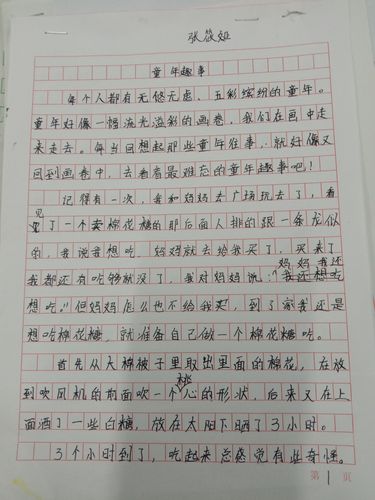 张筱姮
童年趣事
每个人都有无忧无虑、五彩缤纷的童年。
童年好像一幅流光溢彩的画卷,我们在画中走
来走去。每当回想起那些童年往事,就好像又
回到画卷中,去看看最难忘的童年趣事吧!
记得有一次,我和妈妈去广场玩去了,看
见了一个卖棉花糖的那后面人排的跟一条龙似
的,我说我想吃,妈妈就去给我买了,买来了
我都还有吃够就没了,我对妈妈说:“妈妈我还
想吃。”但妈妈怎么也不给我买,到了家我还是
想吃棉花糖,就准备自己做一个棉花糖吃。
首先从大棉被子里取出里面的棉花,在放
到吹风机的前面吹一个桃心的形状,后来又在上
面洒了一些白糖,放在太阳下晒了3小时。
3个小时到了,吃起来总感觉有些奇怪。
第1页